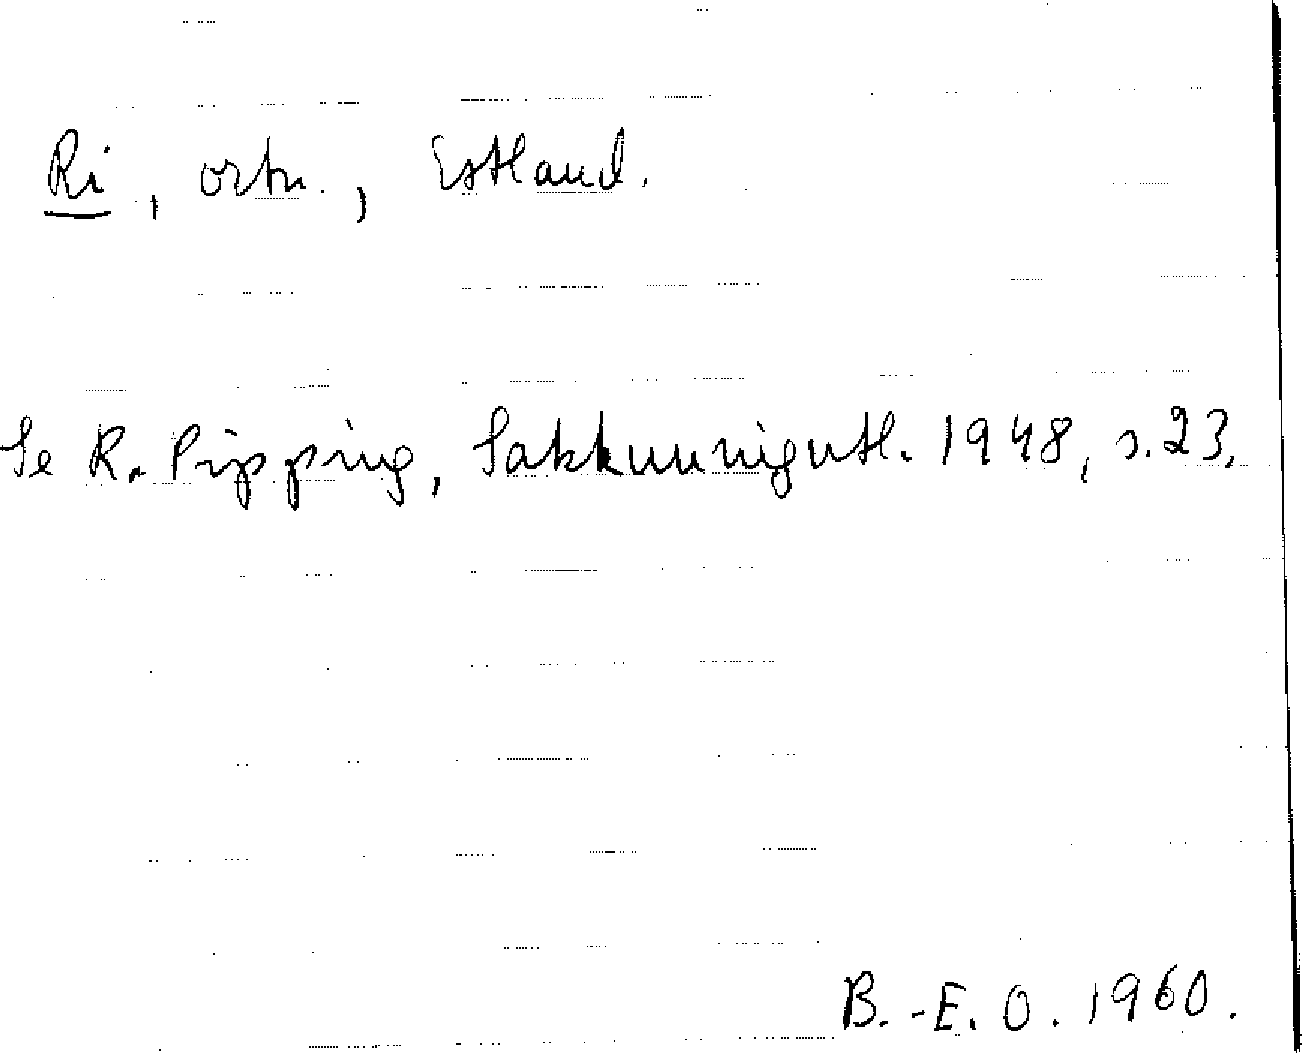 Ri, ortn., Estland.
Se R. Pipping, Sakkunnigutl. 1948, s. 23.
B.-E. O. 1960.